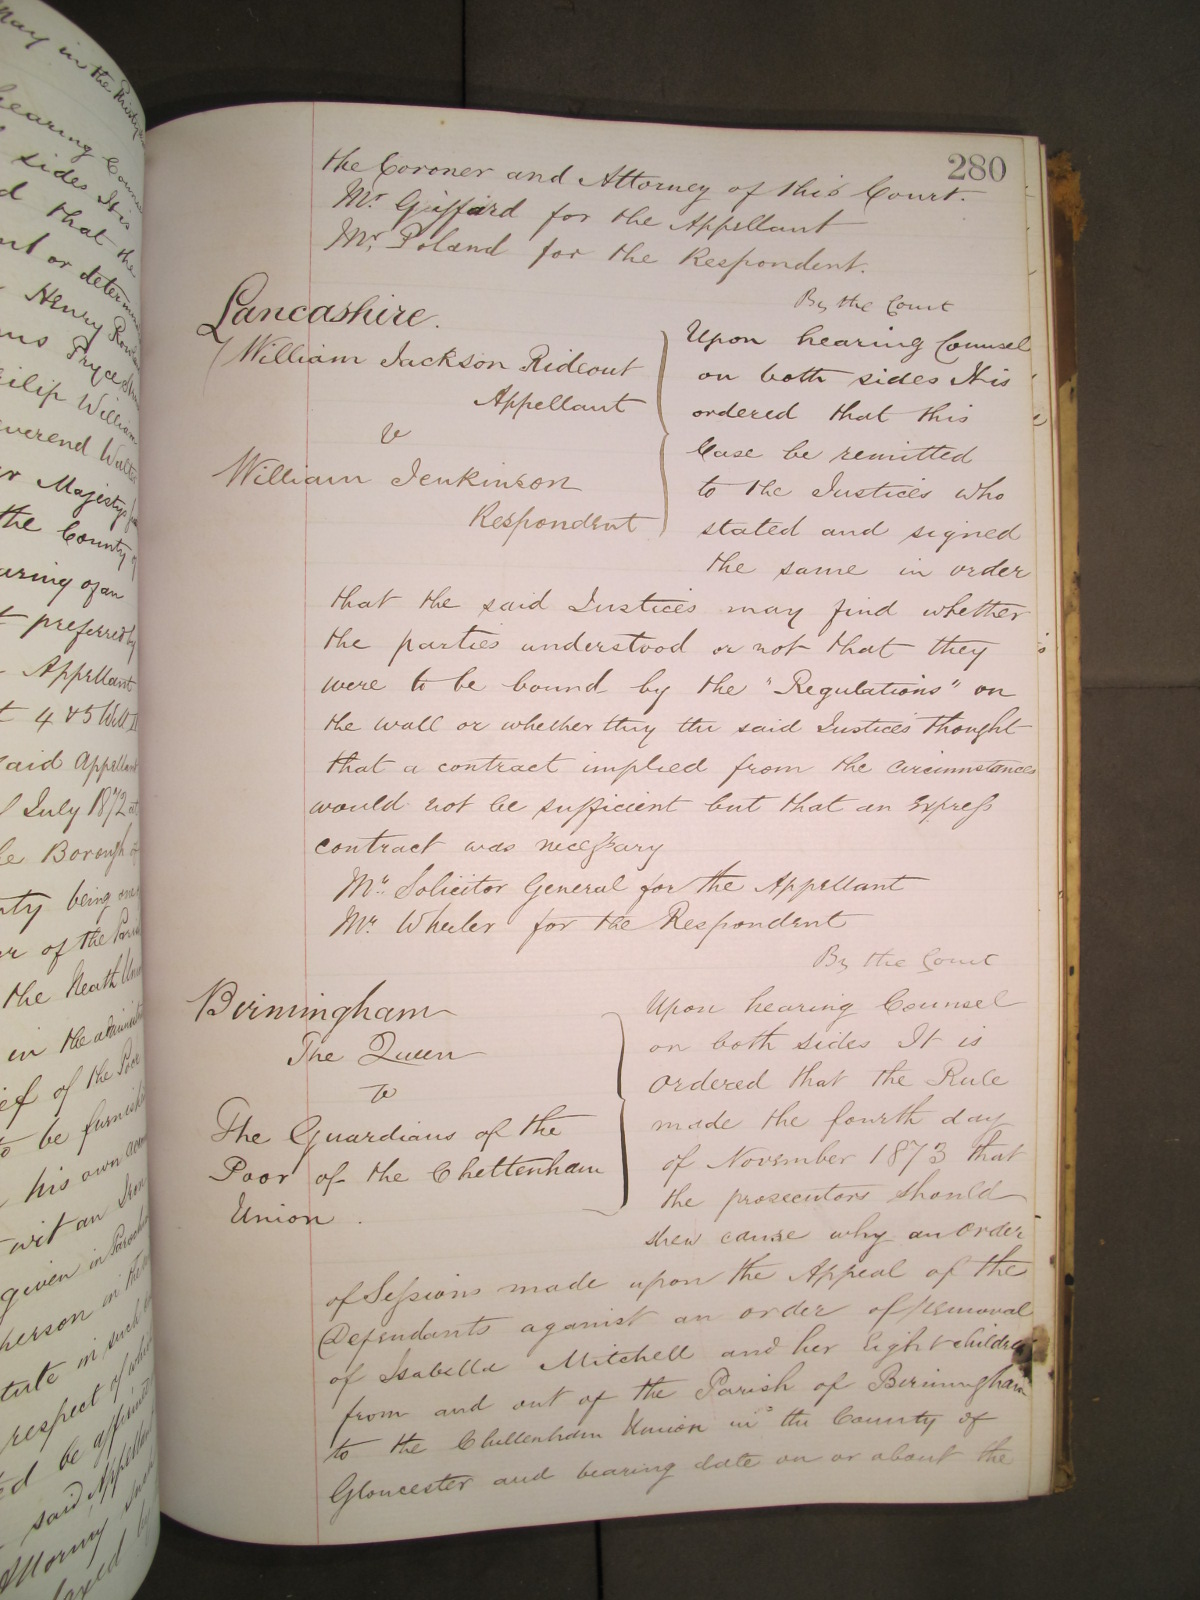 280
the Coroner and Attorney of this Court.
Mr. Giffard for the Appellant
Mr. Poland for the Respondent.
By the Court
Lancashire.
William Jackson Rideout
Appellant
v
William Jenkinson
Respondent
Upon hearing Counsel
on both sides It is
ordered that this
Case be remitted
to the Justices who
stated and signed
the same in order
that the said Justices may find whether
the parties understood or not that they
were to be bound by the "Regulations" on
the wall or whether they the said Justices thought
that a contract implied from the circumstances
would not be sufficient but that an Express
contract was necessary
Mr. Solicitor General for the Appellant
Mr. Wheeler for the Respondent
By the Court
Birmingham
The Queen
v
The Guardians of the
Poor of the Cheltenham
Union.
Upon hearing Counsel
on both sides It is
Ordered that the Rule
made the fourth day
of November 1873 that
the prosecutors should
shew cause why an Order
of Sessions made upon the Appeal of the
Defendants against an order of removal
of Isabella Mitchell and her Eight children
from and out of the Parish of Birmingham
to the Cheltenham Union in the County of
Gloucester and bearing date on or about the
May in the
hearing
sides It is
that the
or
Henry
William
Reverend
Majesty's
the County of
hearing of an
preferred by
Appellant
4 & 5 Will
said Appellant
July 1872 at
Borough of
being one
of the
the Neath Union
in the
of the Poor
to be
his own
wit an Iron
given in
person in the
in such
respect of which
be
said Appellant
Attorney
taxed by